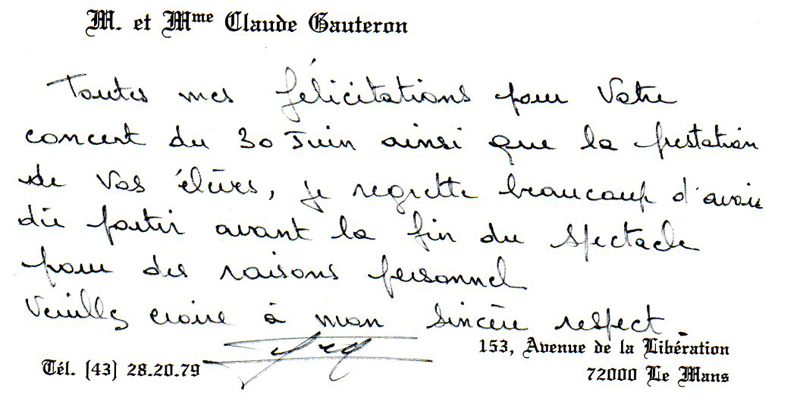 M. et Mme Claude Gauteron
Toutes mes félicitations pour Votre
concert du 30 Juin ainsi que la prestation
de Vos élèves, je regrette beaucoup d'avoir
dû partir avant la fin du spectacle
pour des raisons personnel
Veuillez croire à mon sincère respect.
153, Avenue de la Libération
Tél. (43) 28.20.79
72000 Le Mans